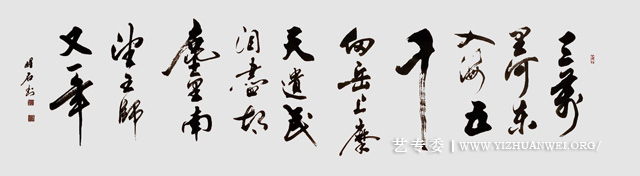 三萬
里河东
入海五
千
仞岳上摩
天遺民
泪盡胡
塵里南
望王師
又一年
艺专委 | WWW.YIZHUANWEI.ORG/